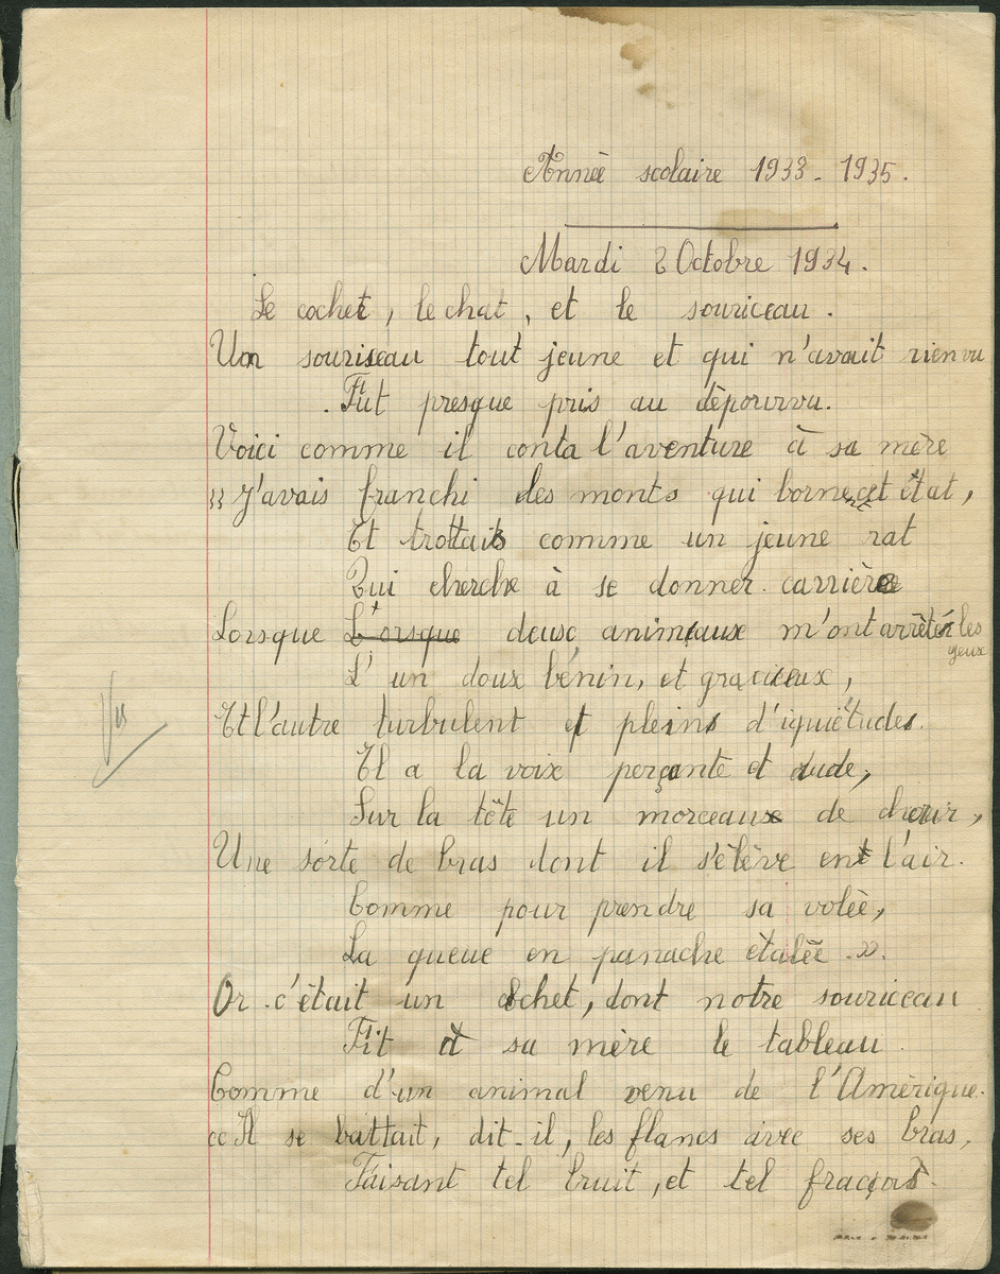 Année scolaire 1933 - 1935.
Mardi 2 Octobre 1934.
Le cochet, le chat, et le souriceau.
Un souriseau tout jeune et qui n'avait rien vu
Fut presque pris au dépourvu.
Voici comme il conta l'aventure à sa mère
"J'avais franchi des monts qui bornent cet état,
Et trottais comme un jeune rat
Qui cherche à se donner carrière
Lorsque L'orsque deux animaux m'ont arrêté les
yeux
L'un doux bénin, et gracieux,
Et l'autre turbulent et pleins d'iquiétudes.
Il a la voix perçante et rude,
Sur la tête un morceau de chair,
Une sorte de bras dont il s'élève en l'air.
Comme pour prendre sa volée,
La queue en panache étalée ».
Or c'était un cochet, dont notre souriceau
Fit à sa mère le tableau.
Comme d'un animal venu de l'Amérique.
« Il se battait, dit-il, les flancs avec ses bras,
Faisant tel bruit, et tel fracas.
Vu